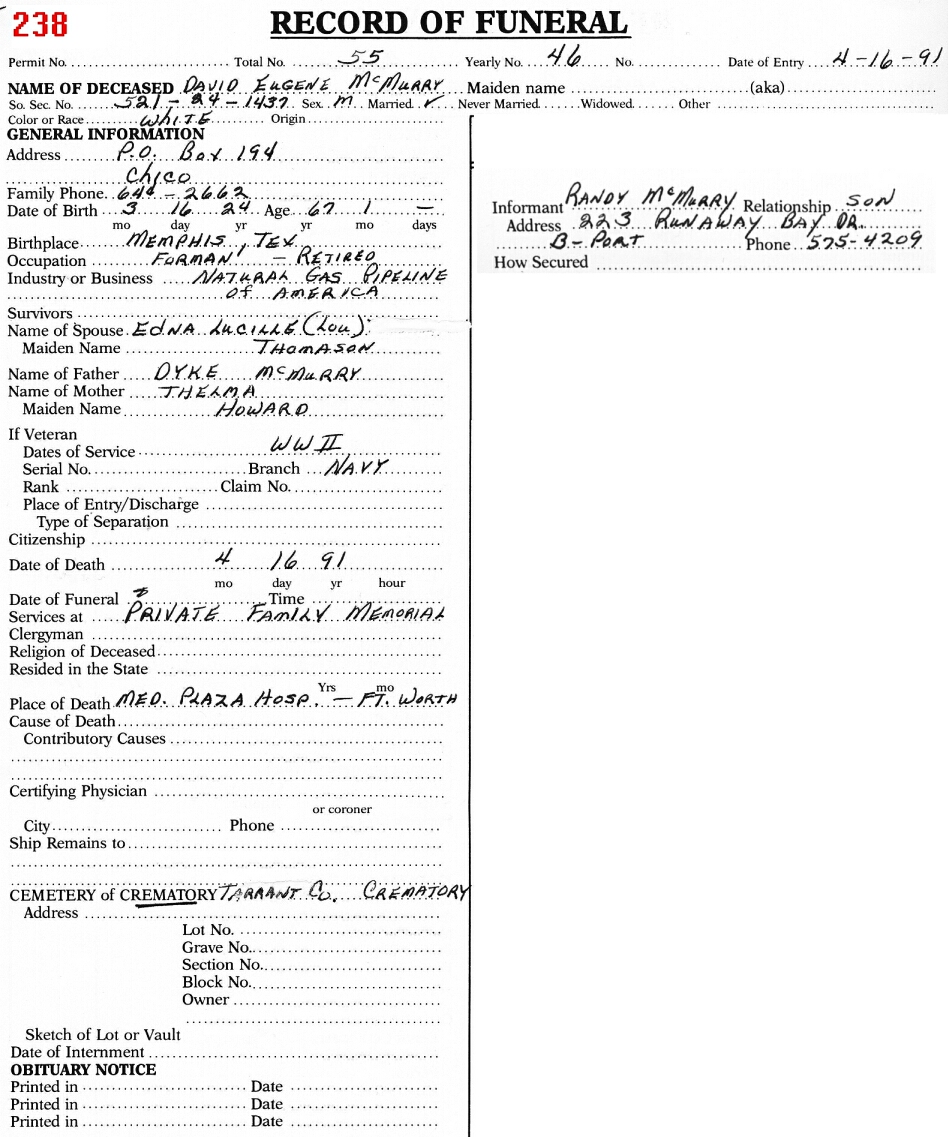 238
RECORD OF FUNERAL
Permit No. Total No. 55 Yearly No. 46 No. Date of Entry 4-16-91
NAME OF DECEASED DAVID EUGENE McMURRY Maiden name (aka)
So. Sec. No. 521-24-1437 Sex M Married ✓ Never Married Widowed Other
Color or Race WHITE Origin
GENERAL INFORMATION
Address P.O. Box 194
CHICO
Family Phone 644-2662
Date of Birth 3 16 24 Age 67 1 —
mo day yr yr mo days
Birthplace MEMPHIS, TEX.
Occupation FORMAN - RETIRED
Industry or Business NATURAL GAS PIPELINE
OF AMERICA
Survivors
Name of Spouse EDNA LUCILLE (LOU)
Maiden Name THOMASON
Name of Father DYKE McMURRY
Name of Mother THELMA
Maiden Name HOWARD
If Veteran
Dates of Service WW II
Serial No. Branch NAVY
Rank Claim No.
Place of Entry/Discharge
Type of Separation
Citizenship
Date of Death 4 16 91
mo day yr hour
Date of Funeral Time
Services at PRIVATE FAMILY MEMORIAL
Clergyman
Religion of Deceased
Resided in the State
Yrs mo
Place of Death MED. PLAZA HOSP. - FT. WORTH
Cause of Death
Contributory Causes
Certifying Physician
or coroner
City Phone
Ship Remains to
CEMETERY of CREMATORY TARRANT Co. CREMATORY
Address
Lot No.
Grave No.
Section No.
Block No.
Owner
Sketch of Lot or Vault
Date of Internment
OBITUARY NOTICE
Printed in Date
Printed in Date
Printed in Date
Informant RANDY McMURRY Relationship SON
Address 223 RUNAWAY BAY DR.
B-PORT Phone 575-4209
How Secured